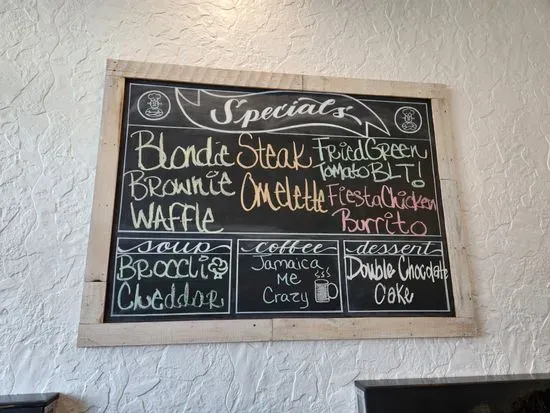 Specials
Blondie
Brownie
WAFFLE
Steak
Omelette
Fried Green
Tomato BLT!
Fiesta Chicken
Burrito
soup
Broccli
Cheddar
coffee
Jamaica
Me
Crazy
dessert
Double Chocolate
Cake